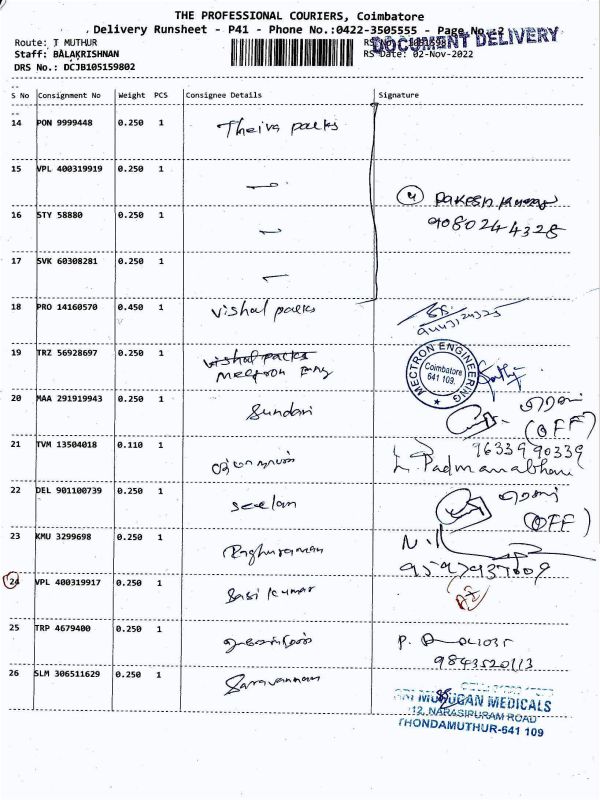 THE PROFESSIONAL COURIERS, Coimbatore
Delivery Runsheet - P41 - Phone No.:0422-3505555 - Page No.:2
DOCUMENT DELIVERY
Route: T MUTHUR
Staff: BALAKRISHNAN
RS Date: 02-Nov-2022
DRS No.: DCJB105159802
S No Consignment No Weight PCS Consignee Details Signature
14 PON 9999448 0.250 1 Theiva packs
15 VPL 400319919 0.250 1
④ RAKESH
16 STY 58880 0.250 1
9080244328
17 SVK 60308281 0.250 1
18 PRO 14160570 0.450 1 Vishal packs
9443124325
19 TRZ 56928697 0.250 1 Vishal packs
Mectron Eng
MECTRON ENGINEERING
Coimbatore
641 109.
20 MAA 291919943 0.250 1 Sundari
(OFF)
21 TVM 13504018 0.110 1
9633990339
L. Padmanabhan
22 DEL 901100739 0.250 1 Seelan
(OFF)
23 KMU 3299698 0.250 1 Raghuraman
24 VPL 400319917 0.250 1 Sasi kumar
25 TRP 4679400 0.250 1
9843520113
26 SLM 306511629 0.250 1 Saravannan
SRI MURUGAN MEDICALS
12, NARASIPURAM ROAD
THONDAMUTHUR-641 109